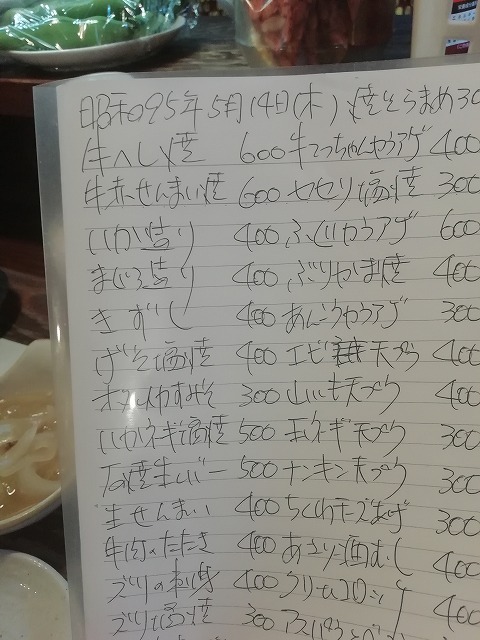 昭和95年5月14日(木) 焼そらまめ 30
牛ヘレ焼 600 牛てっちゃんからアゲ 400
牛赤せんまい焼 600 セセリ塩焼 300
いか造り 400 ふぐからアゲ 600
まぐろ造り 400 ぶりかま焼 400
きずし 400 あんこうからアゲ 300
げそ塩焼 400 エビ 天プラ 400
ホタルイカすみそ 300 山いも天プラ 400
いかネギ塩焼 500 玉ネギ天プラ 300
石焼生レバー 500 ナンキン天プラ 300
生せんまい 400 ちくわチーズあげ 300
牛肉のたたき 400 あさり酒むし 400
ズリの刺身 400 クリームコロッケ 400
ズリ塩焼 300 アスパラ